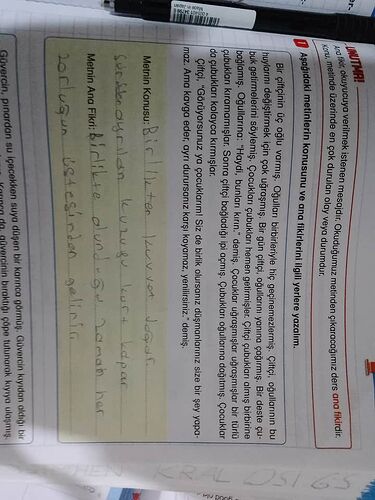 UNUTMA!
Ana fikir, okuyucuya verilmek istenen mesajdır. Okuduğumuz metinden çıkaracağımız ders ana fikirdir.
Konu, metinde üzerinde en çok durulan olay veya durumdur.
1 Aşağıdaki metinlerin konusunu ve ana fikirlerini ilgili yerlere yazalım.
Bir çiftçinin üç oğlu varmış. Oğulları birbirleriyle hiç geçinemezlermiş. Çiftçi, oğullarının bu
huylarını değiştirmek için çok uğraşmış. Bir gün çiftçi, oğullarını yanına çağırmış. Bir deste çu-
buk getirmelerini söylemiş. Çocukları çubukları hemen getirmişler. Çiftçi çubukları almış birbirine
bağlamış. Oğullarına: "Haydi, bunları kırın." demiş. Çocuklar uğraşmışlar uğraşmışlar bir türlü
çubukları kıramamışlar. Sonra çiftçi bağladığı ipi açmış. Çubukları oğullarına dağıtmış. Çocuklar
da çubukları kolayca kırmışlar.
Çiftçi, "Görüyorsunuz ya çocuklarım! Siz de birlik olursanız düşmanlarınız size bir şey yapa-
maz. Ama kavga eder, ayrı durursanız karşı koyamaz, yenilirsiniz." demiş.
Metnin Konusu: Birlikten kuvvet doğar
Sürüden ayrılan kuzuyu kurt kapar
Metnin Ana Fikri: Birlikte olunduğu zaman her
zorluğun üstesinden gelinir
Güvercin, pınardan su içecekken suya düşen bir karınca görmüş. Güvercin kıyıdan aldığı bir
Karınca da, güvercinin bıraktığı çöpe tutunarak kıyıya ulaşmış.
KRAL